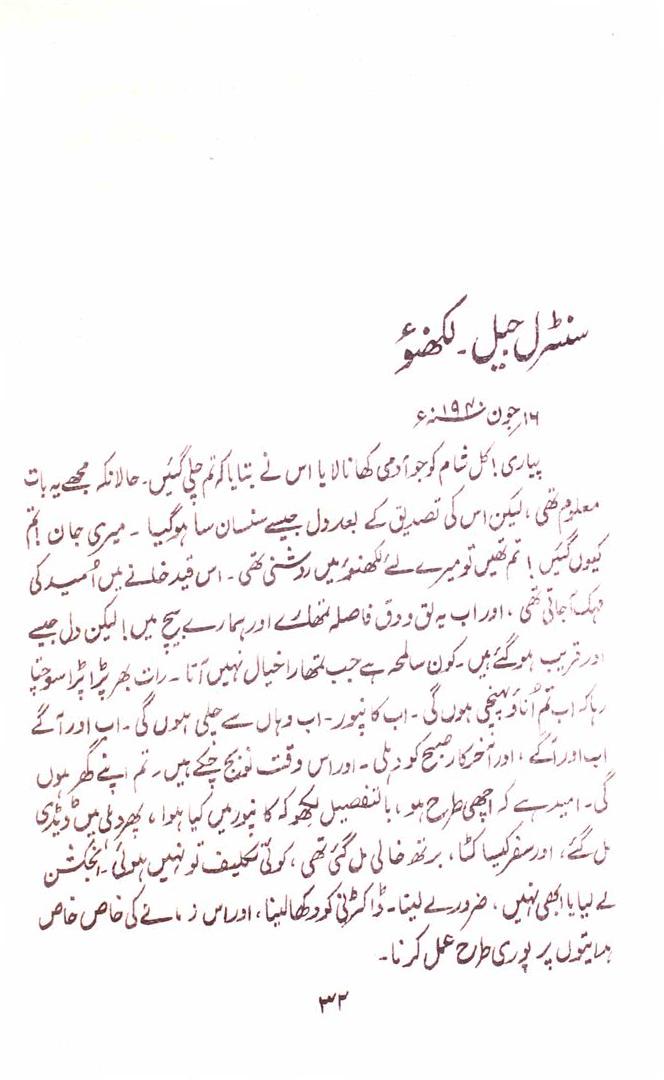 سنٹرل جیل۔ لکھنؤ
۱۶ر جون ۱۹۴۰ء
پیاری! کل شام کو جو آدمی کھانا لایا اس نے بتایا کہ تم چلی گئیں۔ حالانکہ مجھے یہ بات
معلوم تھی، لیکن اس کی تصدیق کے بعد دل جیسے سنسان سا ہوگیا۔ میری جان! تم
کیوں گئیں! تم تھیں تو میرے لئے لکھنؤ میں روشنی تھی۔ اس قید خانے میں اُمید کی
مہک آجاتی تھی، اور اب یہ لق و دق فاصلہ تمھارے اور ہمارے بیچ میں! لیکن دل جیسے
اور قریب ہو گئے ہیں۔ کون سا لمحہ ہے جب تمھارا خیال نہیں آتا۔ رات بھر پڑا پڑا سوچتا
رہا کہ اب تم اُناؤ پہنچی ہوں گی۔ اب کانپور۔ اب وہاں سے چلی ہوں گی۔ اب اور آگے
اب اور آگے، اور آخر کار صبح کو دہلی۔ اور اس وقت نو بج چکے ہیں۔ تم اپنے گھر ہوں
گی۔ امید ہے کہ اچھی طرح ہو، بالتفصیل لکھو کہ کانپور میں کیا ہوا، پھر دہلی میں ڈیڈی
مل گئے، اور سفر کیسا کٹا، برتھ خالی مل گئی تھی، کوئی تکلیف تو نہیں ہوئی۔ انجکشن
لے لیا یا ابھی نہیں، ضرور لے لینا۔ ڈاکٹرنی کو دکھا لینا، اور اس زمانے کی خاص خاص
ہدایتوں پر پوری طرح عمل کرنا۔
۳۲